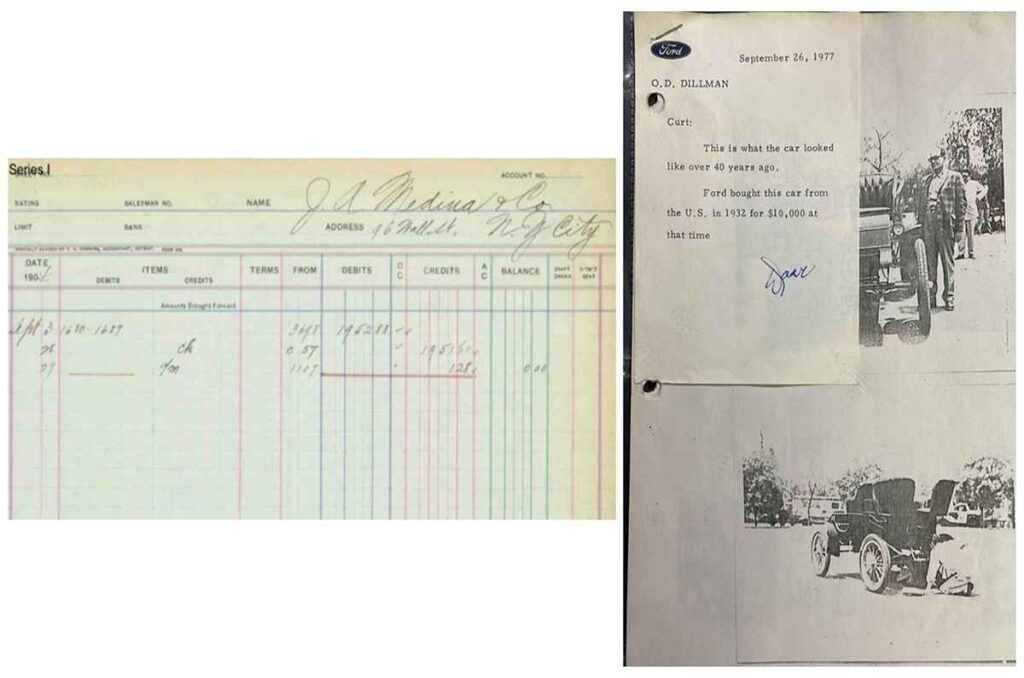 Series I
ACCOUNT NO.
RATING SALESMAN NO. NAME J. A. Medina & Co.
LIMIT BANK ADDRESS 96 Wall St. N. Y City
DATE ITEMS TERMS FROM DEBITS CREDITS BALANCE
190 DEBITS CREDITS
Amounts Brought Forward
Sept 3 1680-1689 3698 1952 88
26 ck C 57 1951 60
27 1107 1 28 0 00
Ford
September 26, 1977
O.D. DILLMAN
Curt:
This is what the car looked
like over 40 years ago.
Ford bought this car from
the U.S. in 1932 for $10,000 at
that time